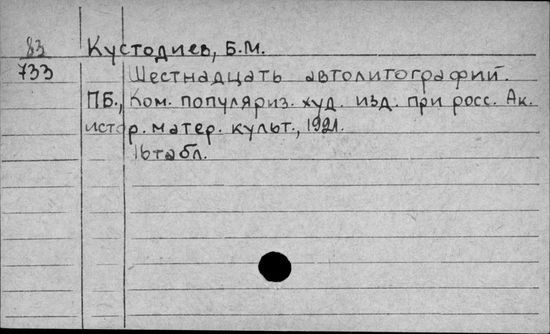 83 Кустодиев, Б.М.
733 Шестнадцать автолитографий.
ПБ., Ком. популяриз. худ. изд. при росс. Ак.
истор. матер. культ., 1921.
16 табл.